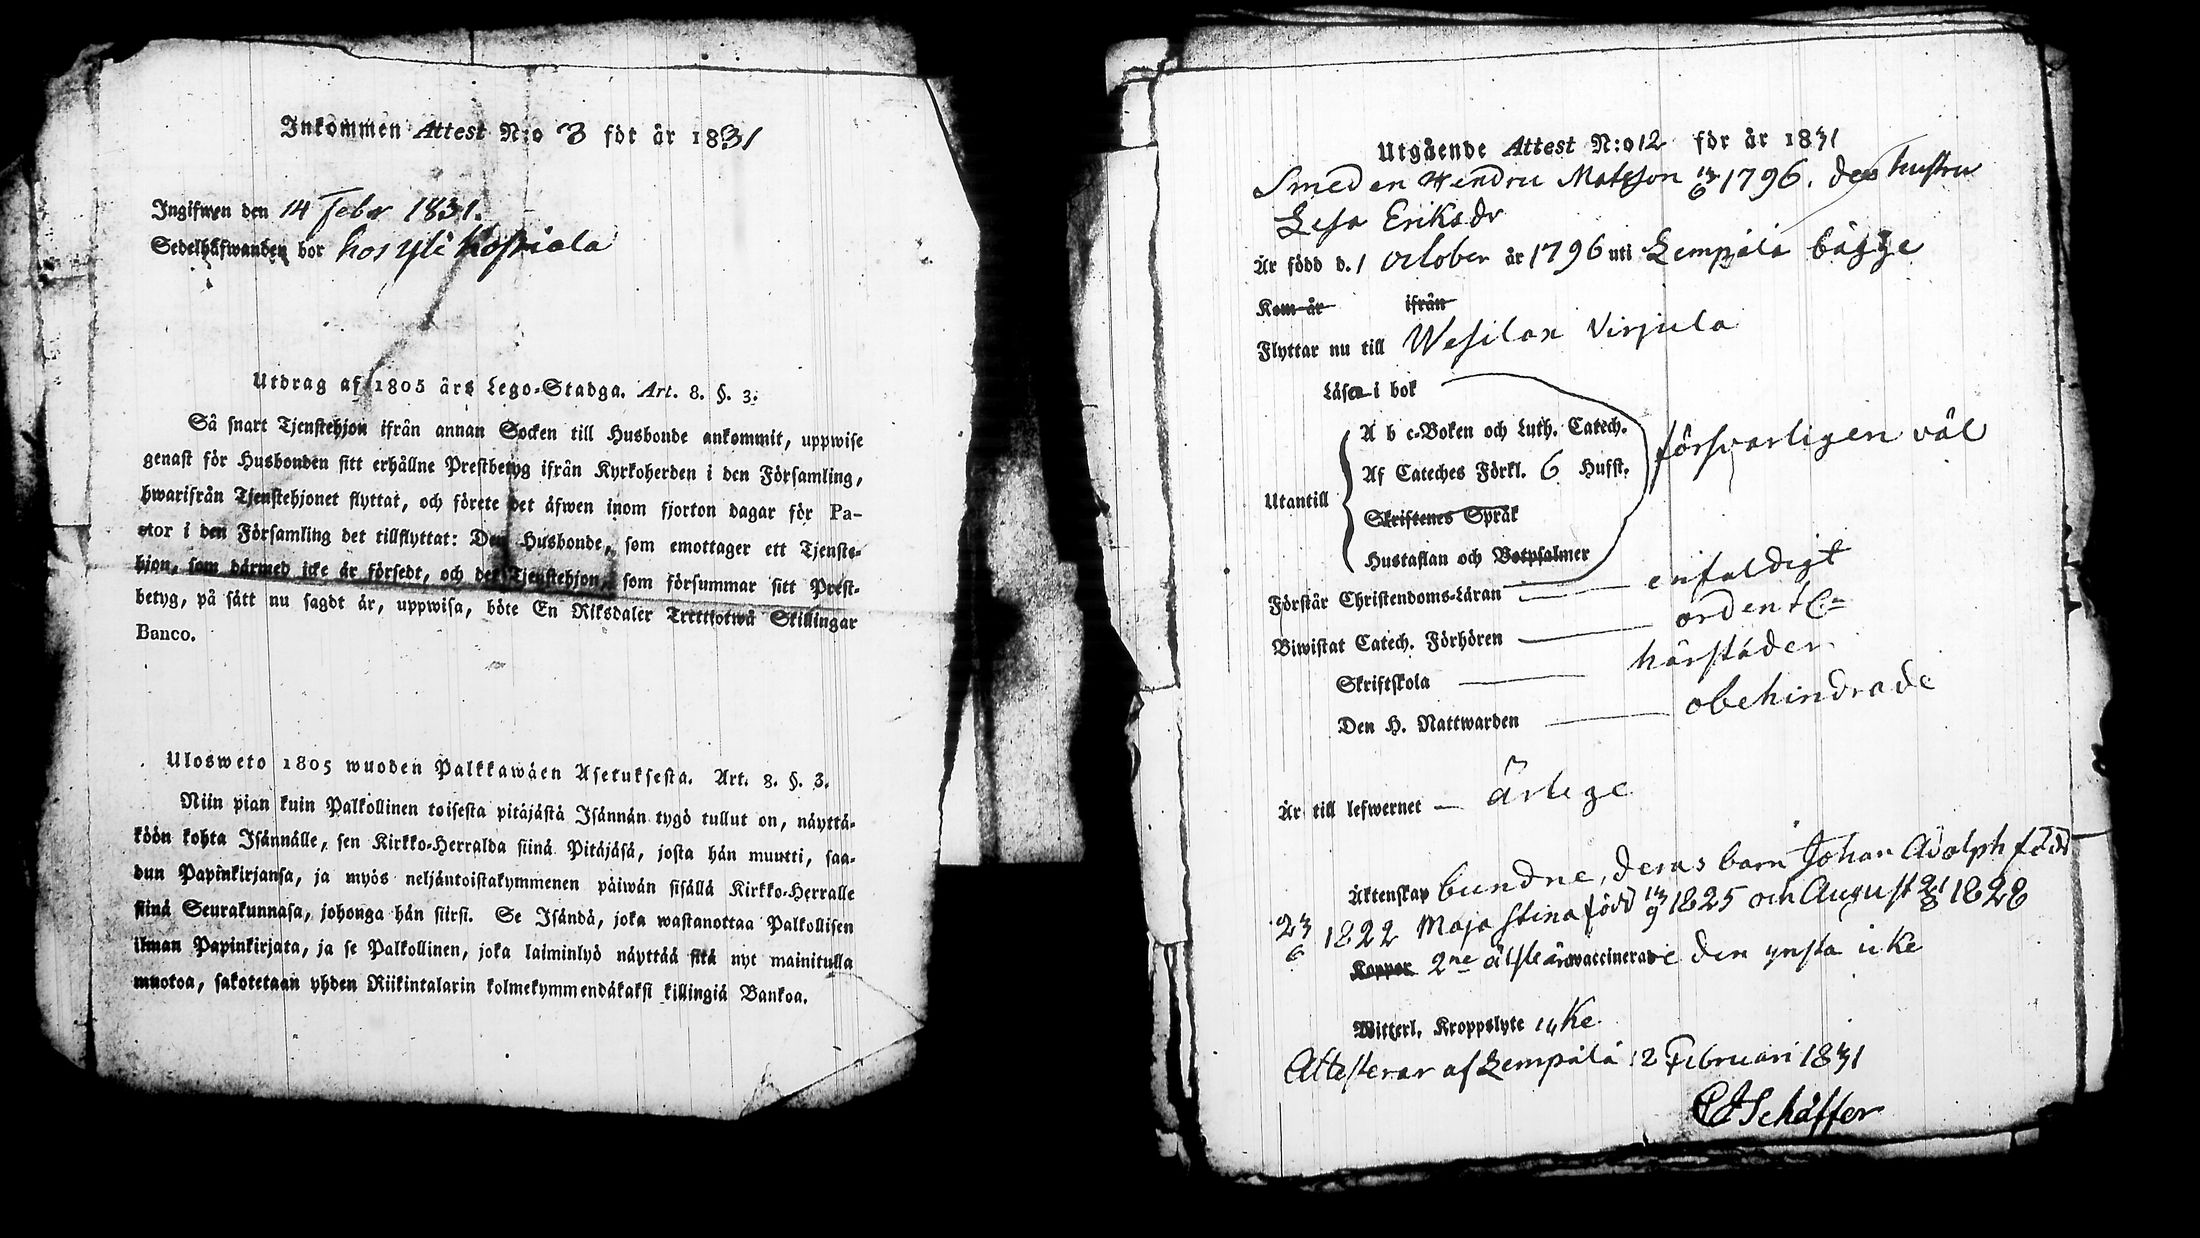 Inkommen Attest N:o 3 för år 1831
Ingifwen den 14 Febr 1831.
Sedelhafwanden bor hos Yli
Utdrag af 1805 års Lego-Stadga. Art. 8. §. 3.
Så snart Tjenstehjon ifrån annan Socken till Husbonde ankommit, uppwise
genast för Husbonden sitt erhållne Prestbetyg ifrån Kyrkoherden i den Församling,
hwarifrån Tjenstehjonet flyttat, och förete det äfwen inom fjorton dagar för Pa-
stor i den Församling det tillflyttat: Den Husbonde, som emottager ett Tjenste-
hjon, som därmed icke är försedt, och det Tjenstehjon, som försummar sitt Prest-
betyg, på sätt nu sagdt är, uppwisa, böte En Riksdaler Trettiotwå Skillingar
Banco.
Ulosweto 1805 wuoden Palkkawäen Asetuksesta. Art. 8. §. 3.
Niin pian kuin Palkollinen toisesta pitäjästä Isännän tygö tullut on, näyttä-
köön kohta Isännälle, sen Kirkko-Herralda siinä Pitäjäsä, josta hän muutti, saa-
dun Papinkirjansa, ja myös neljäntoistakymmenen päiwän sisällä Kirkko-Herralle
siinä Seurakunnasa, johonga hän siirsi. Se Isändä, joka wastanottaa Palkollisen
ilman Papinkirjata, ja se Palkollinen, joka laiminlyö näyttää sitä nyt mainitulla
muotoa, sakotetaan yhden Riikintalarin kolmekymmendäkaksi killingiä Bankoa.
Utgående Attest N:o 12 för år 1831
Smeden Hendric Matsson 13/6 1796. des hustru
Lesa Eriksdr
Är född d. 1 October år 1796 uti Lempälä bägge
Kom år ifrån
Flyttar nu till Wesilax Virjula
Läsa i bok
A b c-Boken och Luth. Catech. försvarligen väl
Af Cateches Förkl. 6 Hufst.
Utantill
Skriftenes Språk
Hustaflan och Botpsalmer
Förstår Christendoms-Läran enfaldigt
Biwistat Catech. Förhören ordentl:
Skriftskola härstäder
Den H. Nattwarden obehindrade
Är till lefwernet ärlige
Äktenskap bundne, deras barn Johan Adolph född
23/6 1822 Maja Stina född 13/9 1825 och August 21/8 1828
Koppor 2ne älste äro vaccinerade den yngsta icke
Witterl. Kroppslyte icke
Attesterar af Lempälä 12 Februari 1831
Schäffer